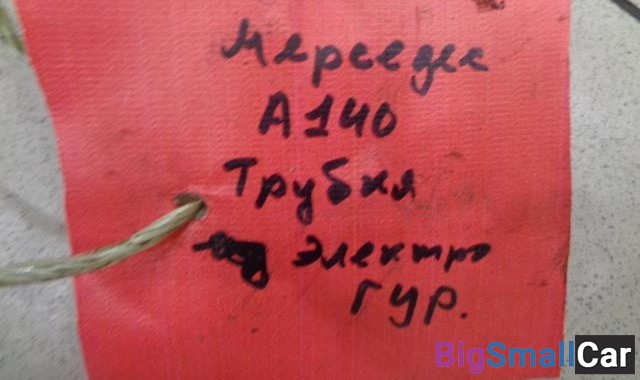 Мерседес
А140
Трубка
электро
ГУР.
BigSmallCar